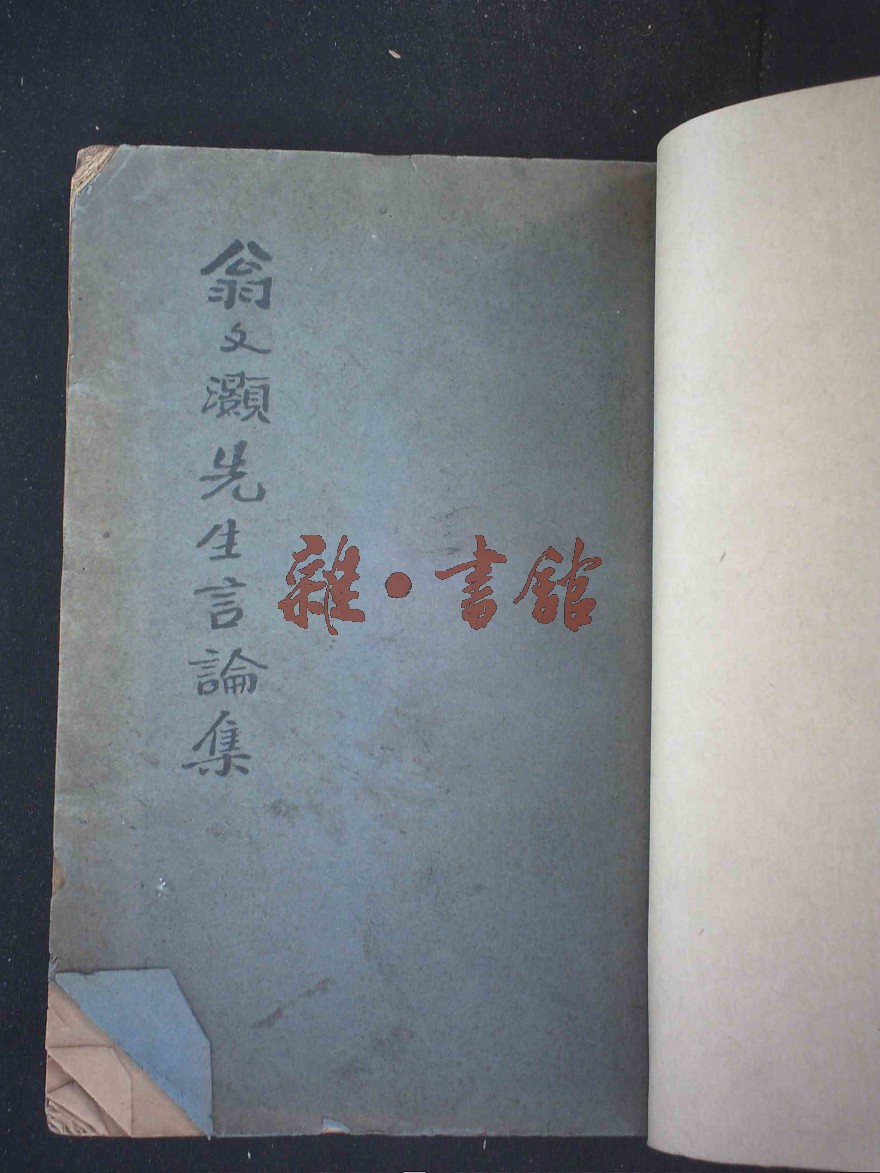 翁文灝先生言論集
雜·書館